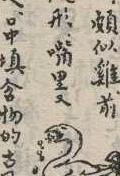 頗似雞前
形、嘴里又
口中填含物的古